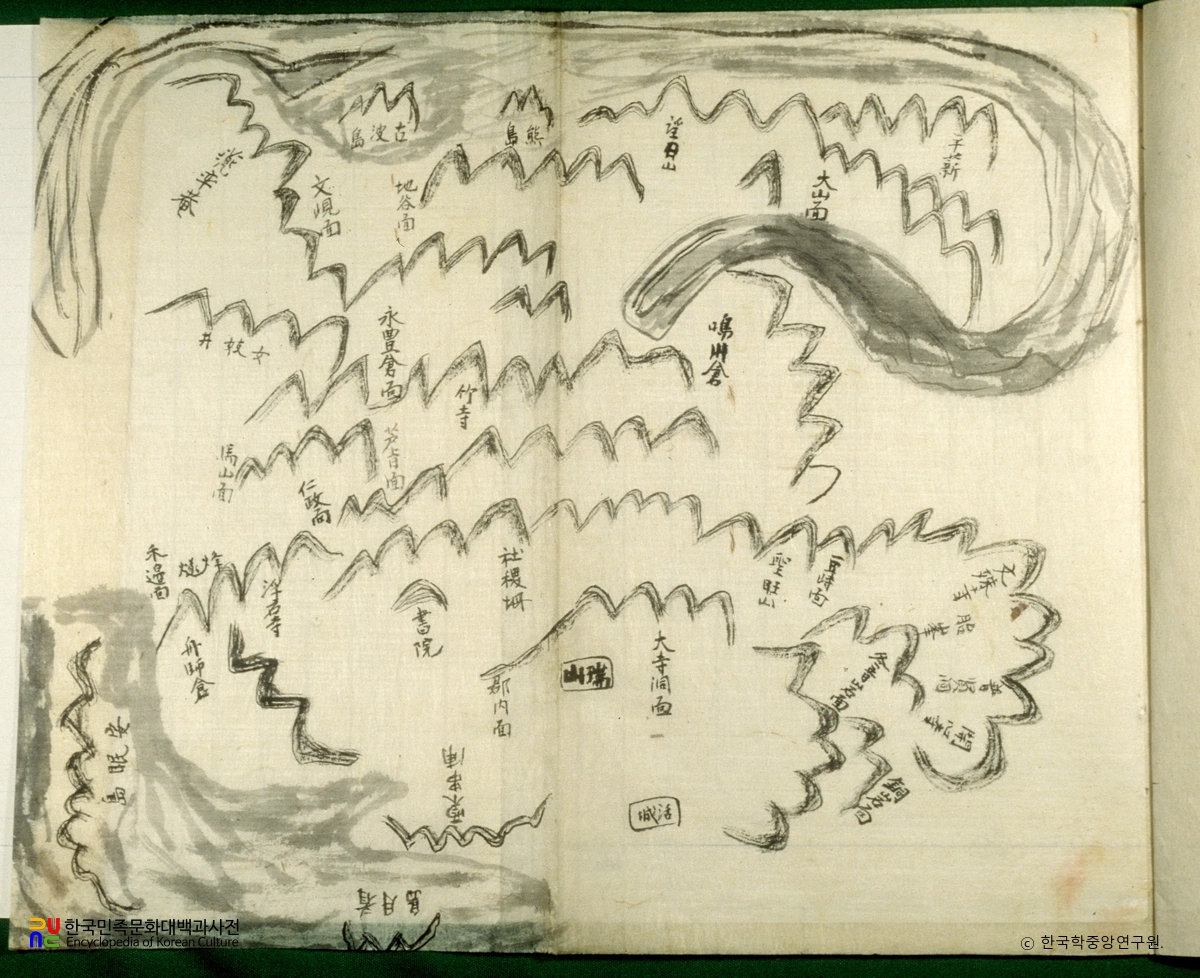 古波島
熊島
望日山
大山面
文峴面
地谷面
永豊倉面
竹寺
鳴川倉
馬山面
芦旨面
仁政面
禾邊面
浮石寺
舟師倉
社稷
書院
聖旺山
大寺洞面
瑞山
郡內面
安眠島
看月島
開心寺
銅岩面
한국민족문화대백과사전
Encyclopedia of Korean Culture
ⓒ 한국학중앙연구원.